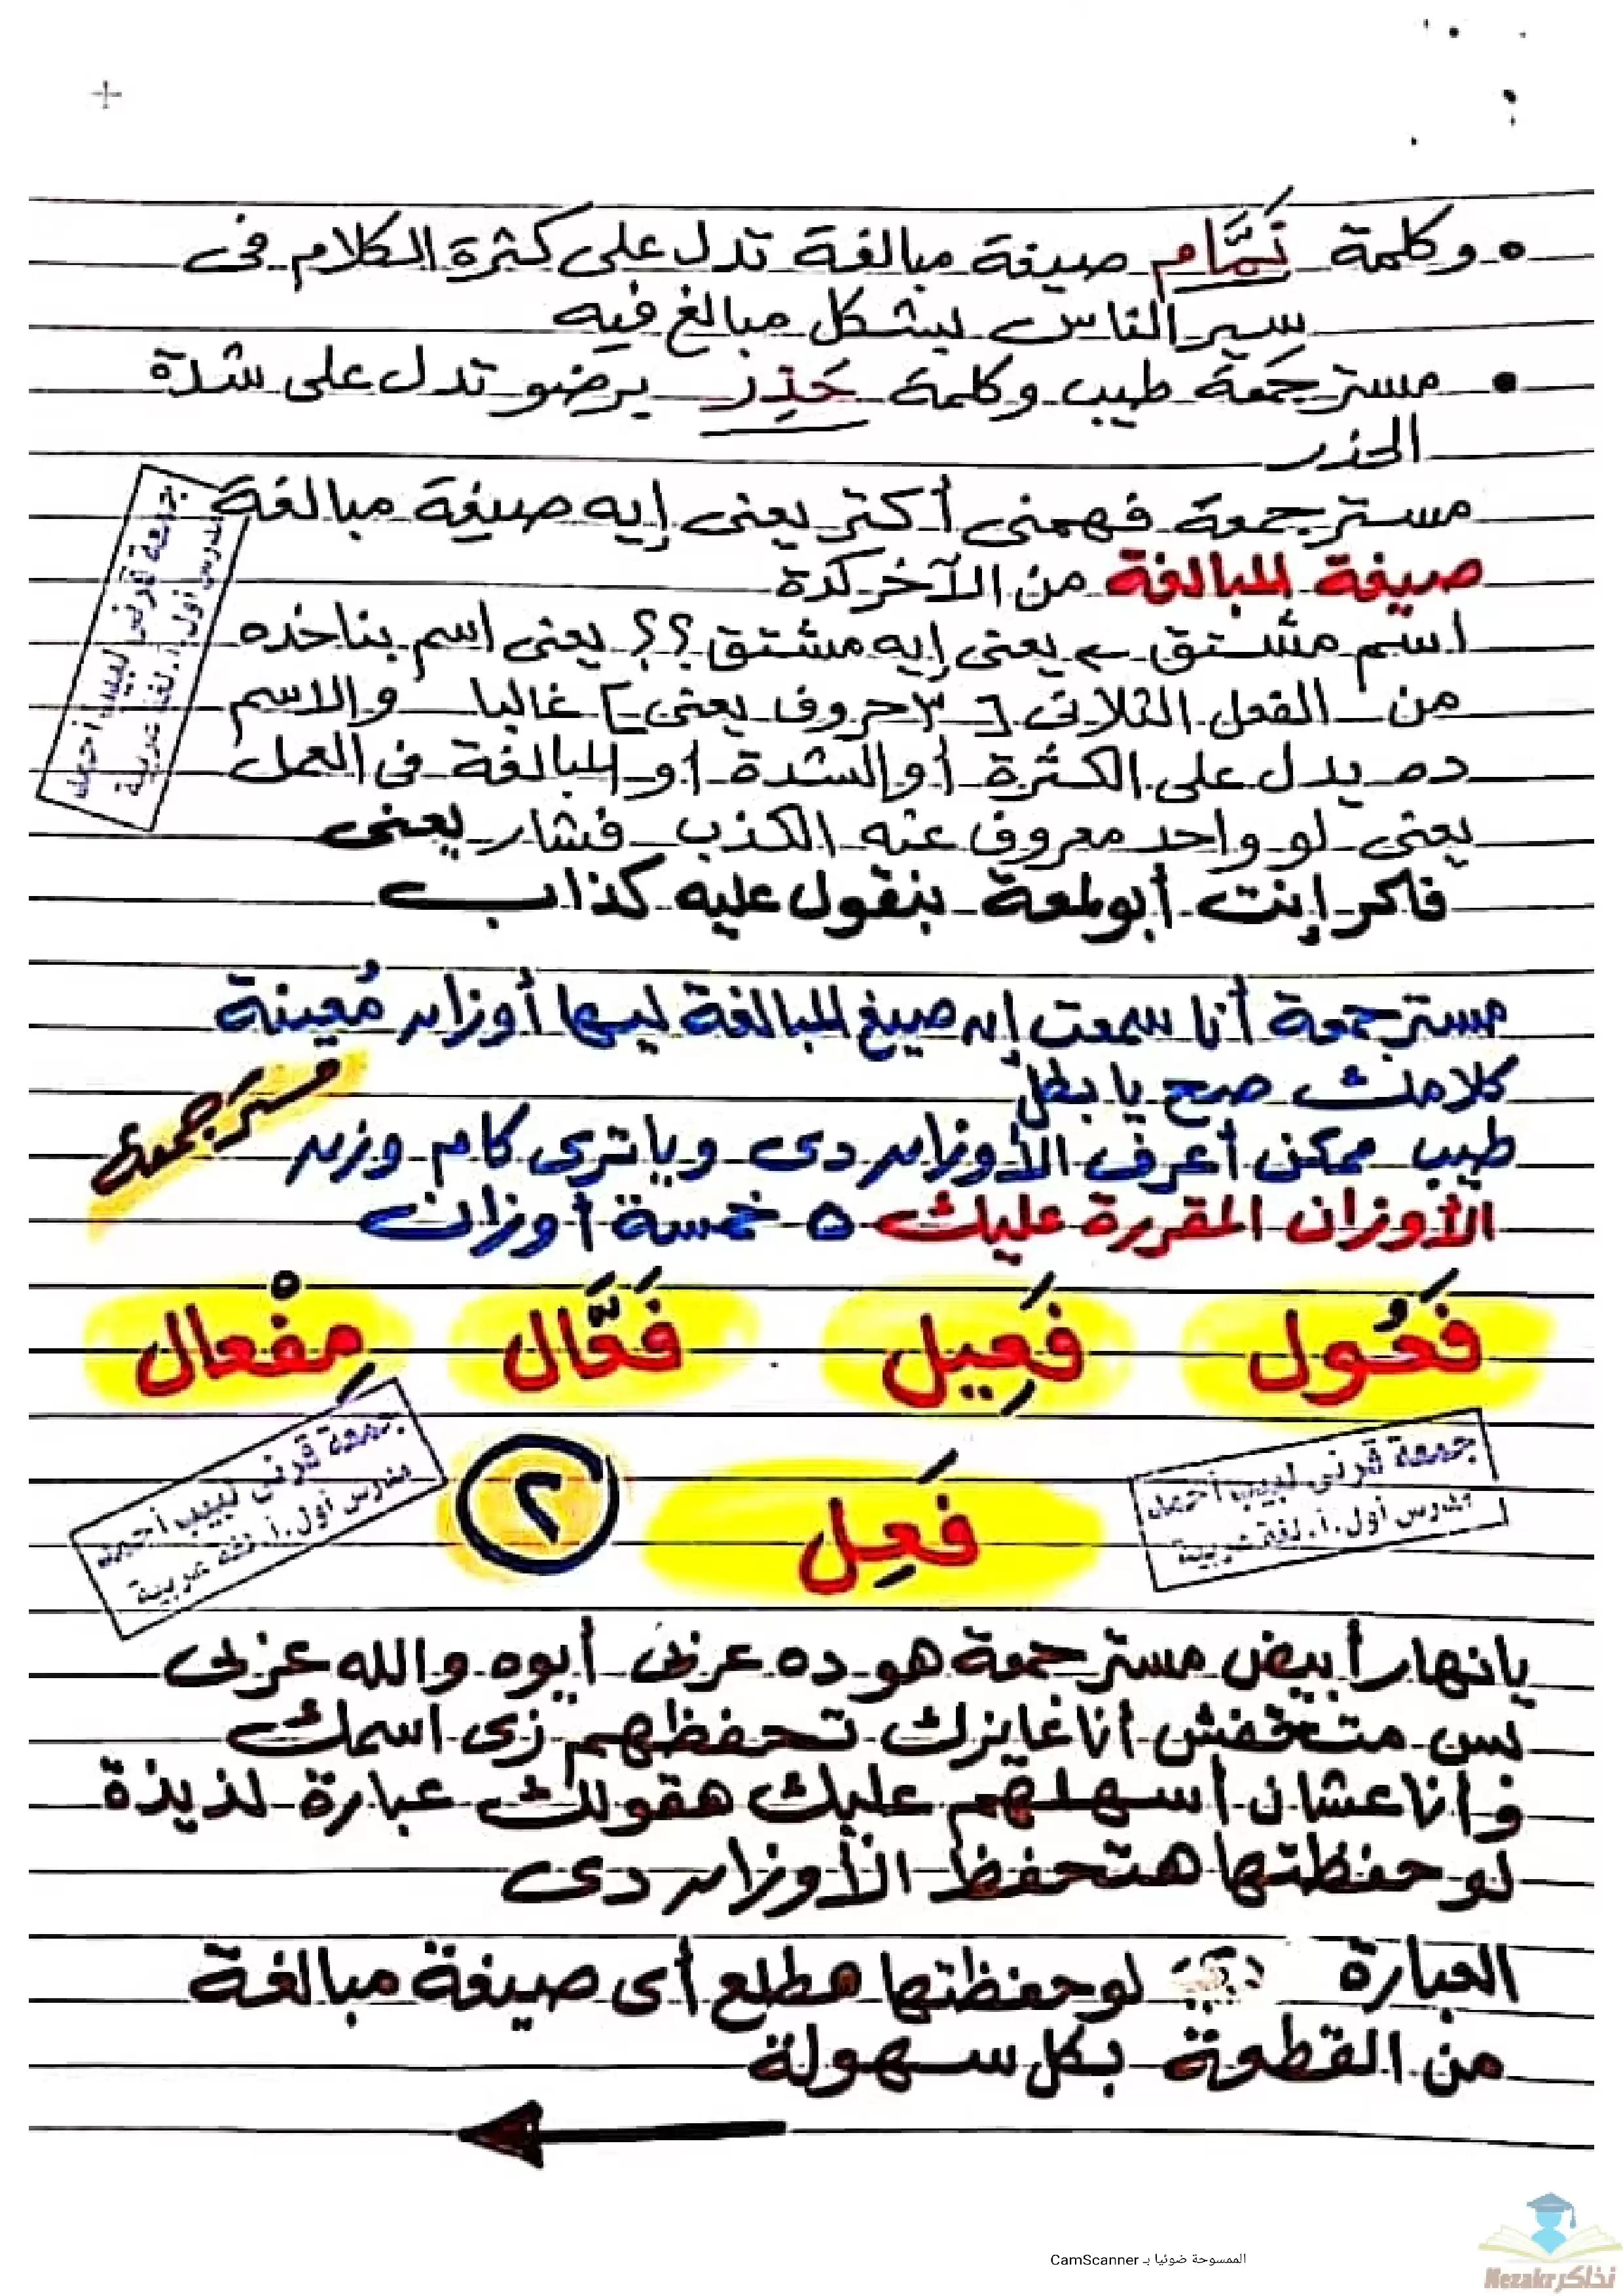 • وكلمة نَمَّام صيغة مبالغة تدل على كثرة الكلام فى
سير الناس بشكل مبالغ فيه
• مستر جمعة طيب وكلمة حَذِر برضو تدل على شدة
الحذر
مستر جمعة فهمنى أكتر يعنى إيه صيغة مبالغة
صيغة المبالغة من الآخر كدة
اسم مشتق ← يعنى إيه مشتق؟؟ يعنى اسم بناخده
من الفعل الثلاثى [٣ حروف يعنى] غالبا والاسم
ده يدل على الكثرة أو الشدة أو المبالغة فى العمل
يعنى لو واحد معروف عنه الكذب فشار يعنى
فاكر إنت أبو لمعة بنقول عليه كذاب
جمعة قرنى لبيب أحمد
مدرس أول.أ. لغة عربية
مستر جمعة أنا سمعت إن صيغ المبالغة ليها أوزان مُعينة
كلامك صح يا بطل
طيب ممكن أعرف الأوزان دى ويا ترى كام وزن
مستر جمعة
الأوزان المقررة عليك ٥ خمسة أوزان
فَعُول فَعِيل فَعَّال مِفْعال
فَعِل
٢
جمعة قرنى لبيب أحمد
مدرس أول.أ. لغة عربية
جمعة قرنى لبيب أحمد
مدرس أول.أ. لغة عربية
يا نهار أبيض مستر جمعة هو ده عربى أيوه والله عربى
بس متخفش أنا عايزك تحفظهم زى اسمك
وأنا عشان أسهلهم عليك هقولك عبارة لذيذة
لو حفظتها هتحفظ الأوزان دى
العبارة لو حفظتها هطلع أى صيغة مبالغة
من القطعة بكل سهولة
الممسوحة ضوئيا بـ CamScanner
نذاكر Nezakr